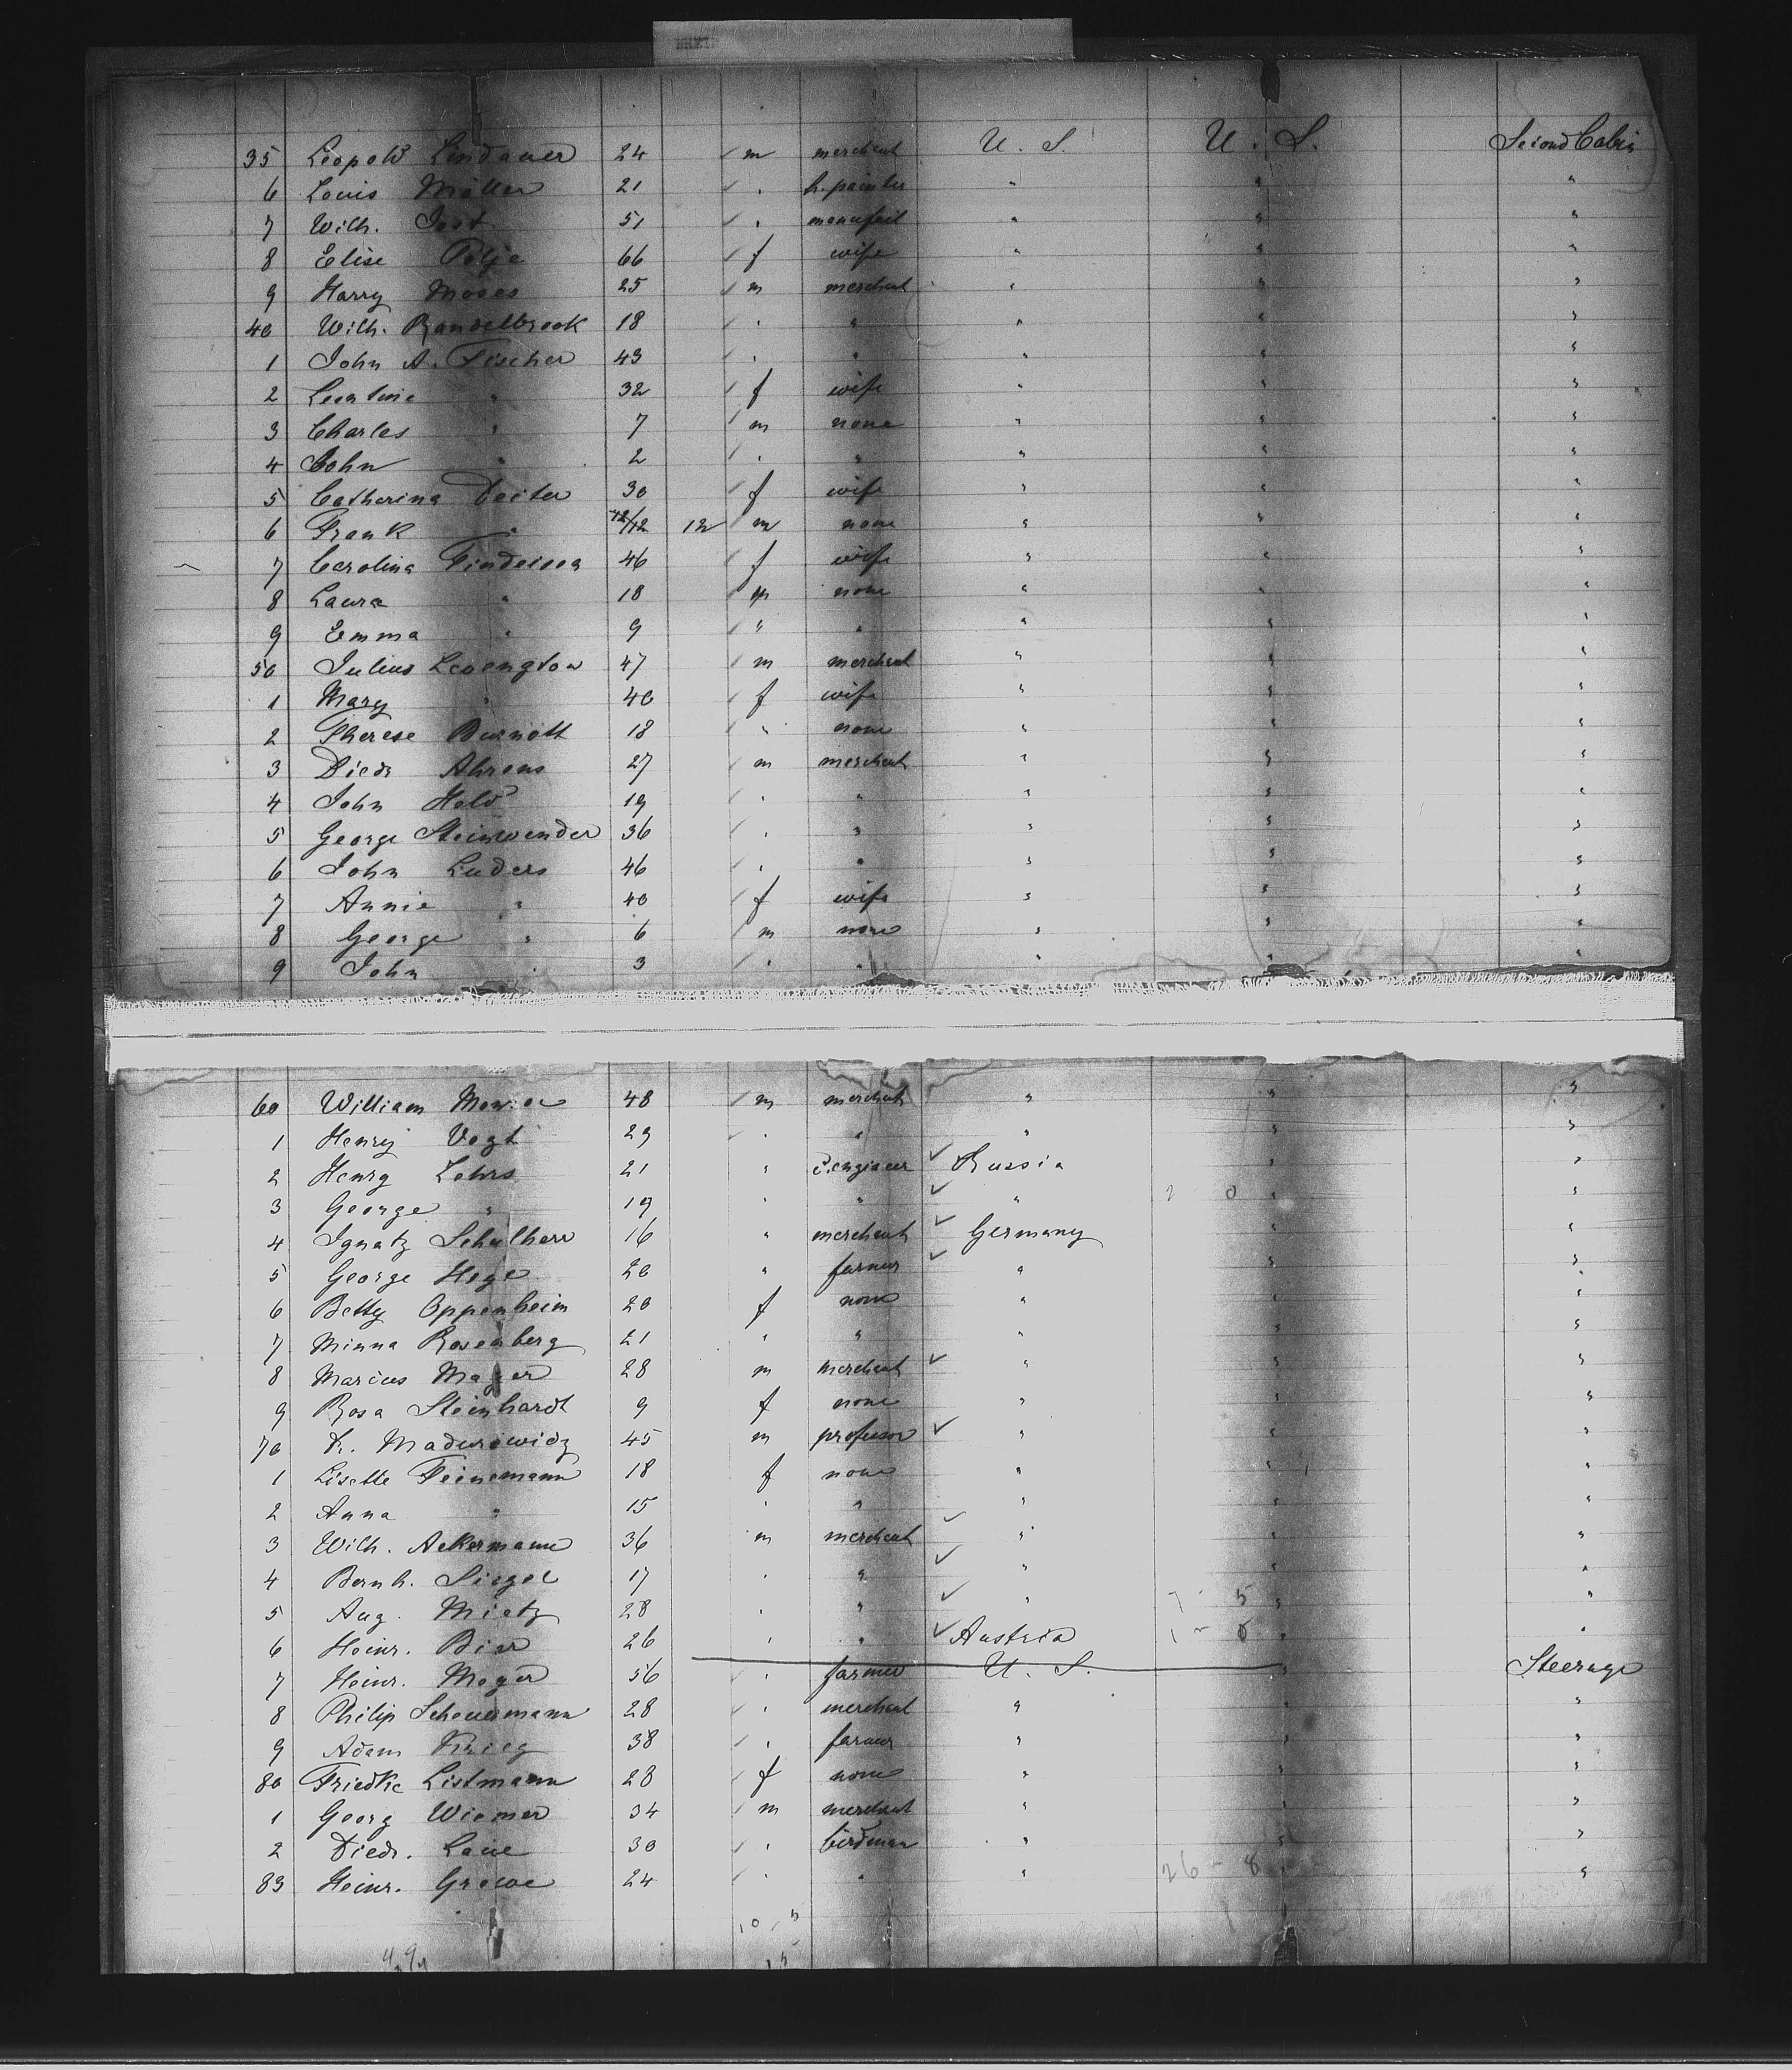 35 Leopold Lindauer 24 m merchant U. S. U. S. Second Cabin
6 Louis Möller 21 " h. painter " " "
7 Wilh. Jost 51 " manufact " " "
8 Elise Pelje 66 f wife " " "
9 Harry Moses 25 m merchant " " "
40 Wilh. Randelbrook 18 " " " " "
1 John A. Fischer 43 " " " " "
2 Leontine " 32 f wife " " "
3 Charles " 7 m none " " "
4 John " 2 " " " " "
5 Catharina Deiter 30 f wife " " "
6 Frank " 12/12 12 m none " " "
7 Carolina Findeisen 46 f wife " " "
8 Laura " 18 none " " "
9 Emma " 9 " " " " "
50 Julius Levengton 47 m merchant " " "
1 Mary " 40 f wife " " "
2 Therese 18 " none " " "
3 Diedr Ahrens 27 m merchant " " "
4 John Held 19 " " " " "
5 George Steinwender 36 " " " " "
6 John Luders 46 " " " " "
7 Annie " 40 f wife " " "
8 George " 6 m none " " "
9 John " 3 " " " " "
60 William 48 m merchant " " "
1 Henry Vogt 29 " " " " "
2 Henry Lehrs 21 " c. engineer Russia " "
3 George " 19 " " " 2 0 " "
4 Ignatz Schulherr 16 " merchant Germany " "
5 George Hege 20 " farmer " " "
6 Betty Oppenheim 20 f none " " "
7 Minna Rosenberg 21 " " " " "
8 Marcus Mayer 28 m merchant " " "
9 Rosa Steinhardt 9 f none " " "
70 Dr. Madurowicz 45 m professor " " "
1 Lisette Feinemann 18 f none " " "
2 Anna " 15 " " " " "
3 Wilh. Ackermann 36 m merchant " " "
4 Bernh. Siegel 17 " " " " "
5 Aug. Mietz 28 " " " 7 - 5 " "
6 Heinr. Bier 26 " " Austria 1 - 0 " "
7 Heinr. Meyer 56 " farmer U. S. " Steerage
8 Philip Scheuermann 28 " merchant " " "
9 Adam Krieg 38 " farmer " " "
80 Friedke Listmann 28 f none " " "
1 Georg Wiemer 34 m merchant " " "
2 Diedr. Laue 30 " birdman " " "
83 Heinr. Grewe 24 " " " 26 - 8 " "